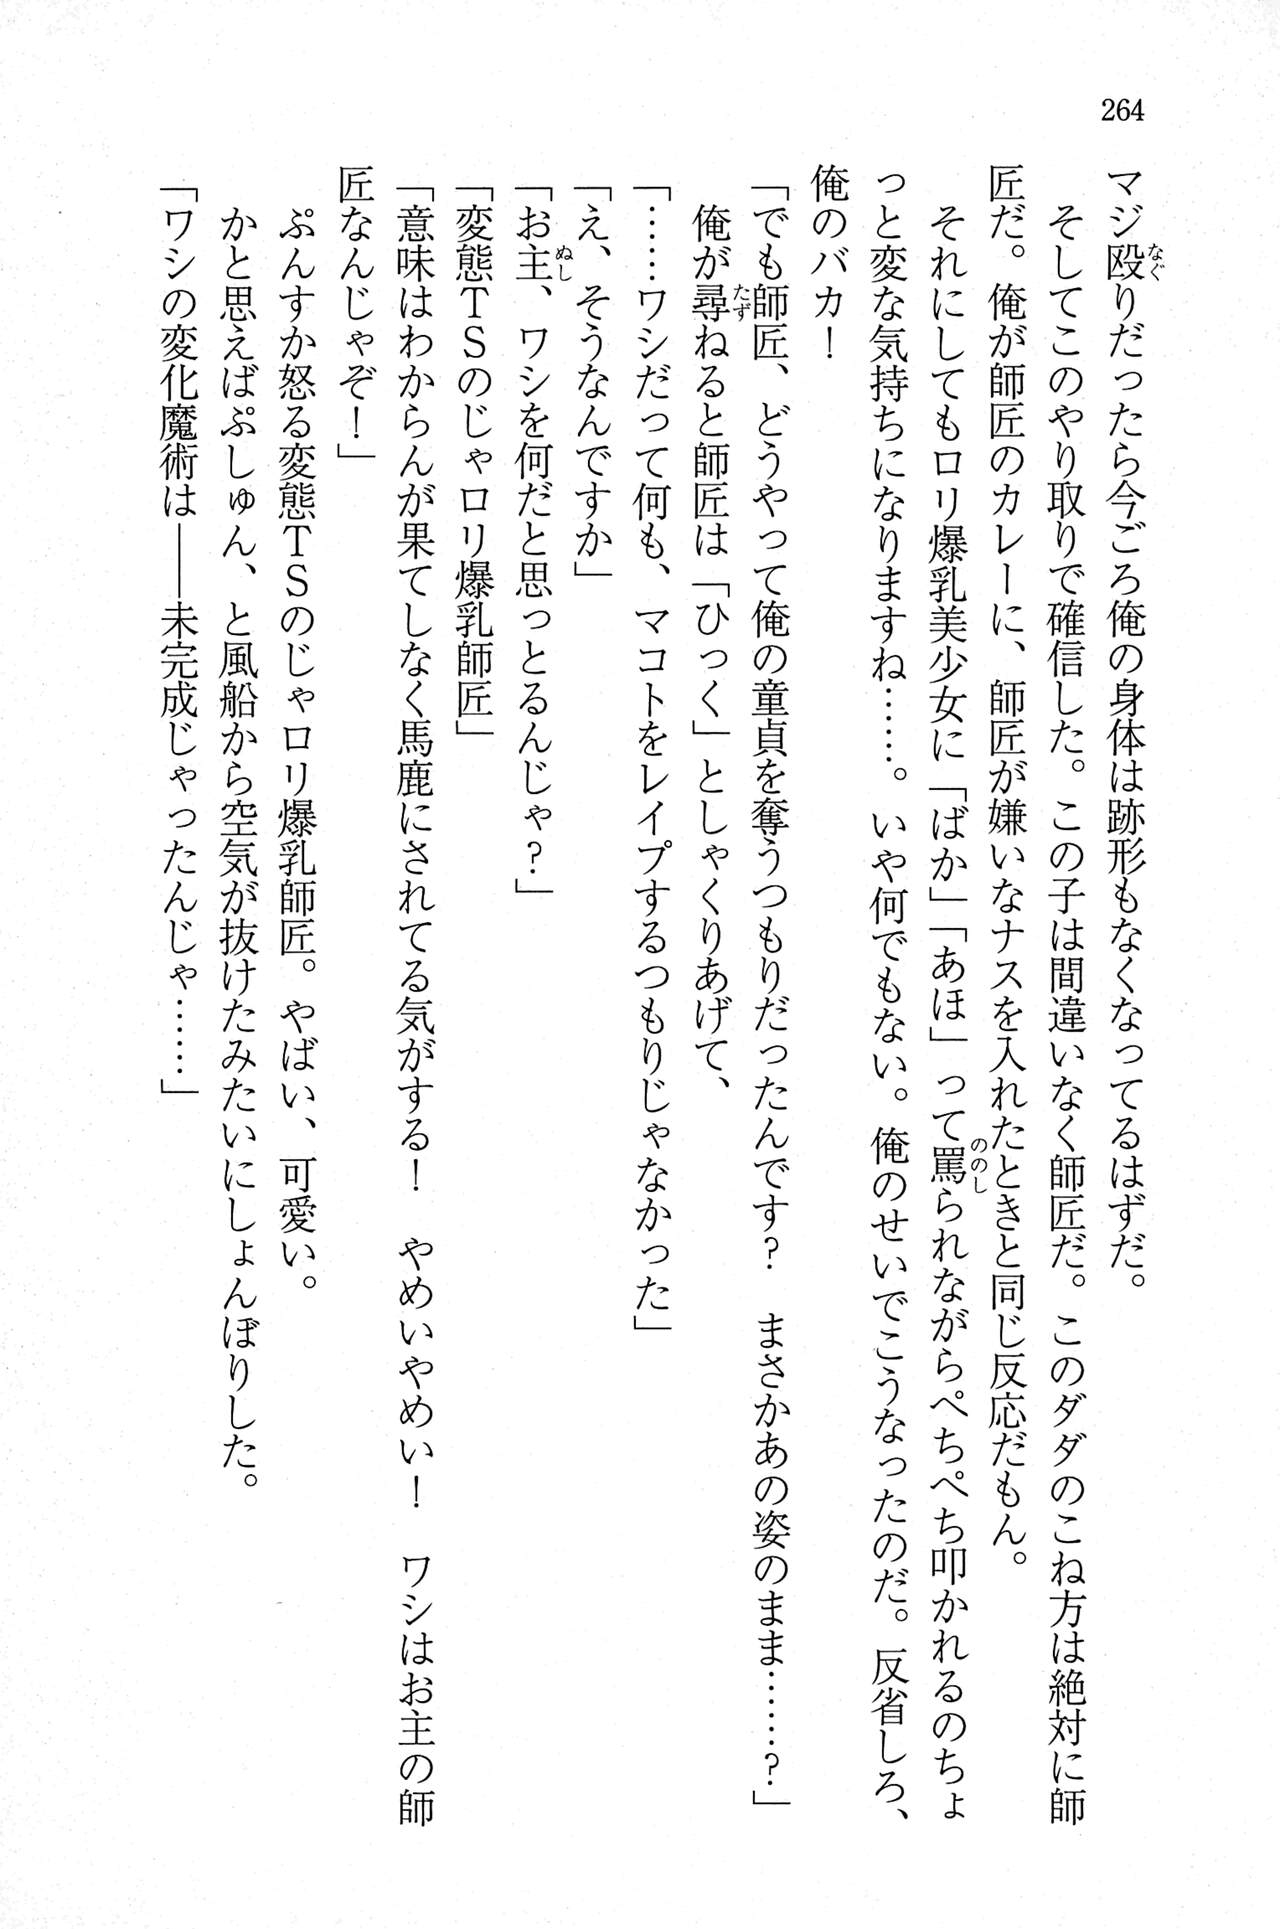 264
なぐ
マジ殴りだったら今ごろ俺の身体は跡形もなくなってるはずだ。
そしてこのやり取りで確信した。この子は間違いなく師匠だ。このダダのこね方は絶対に師
匠だ。俺が師匠のカレーに、師匠が嫌いなナスを入れたときと同じ反応だもん。
ののし
それにしてもロリ爆乳美少女に「ばか」「あほ」って罵られながらぺちぺち叩かれるのちょ
っと変な気持ちになりますね……。いや何でもない。俺のせいでこうなったのだ。反省しろ、
俺のバカ！
「でも師匠、どうやって俺の童貞を奪うつもりだったんです？　まさかあの姿のまま……？」
たず
俺が尋ねると師匠は「ひっく」としゃくりあげて、
「……ワシだって何も、マコトをレイプするつもりじゃなかった」
「え、そうなんですか」
ぬし
「お主、ワシを何だと思っとるんじゃ？」
「変態ＴＳのじゃロリ爆乳師匠」
「意味はわからんが果てしなく馬鹿にされてる気がする！　やめいやめい！　ワシはお主の師
匠なんじゃぞ！」
ぷんすか怒る変態ＴＳのじゃロリ爆乳師匠。やばい、可愛い。
かと思えばぷしゅん、と風船から空気が抜けたみたいにしょんぼりした。
「ワシの変化魔術は――未完成じゃったんじゃ……」